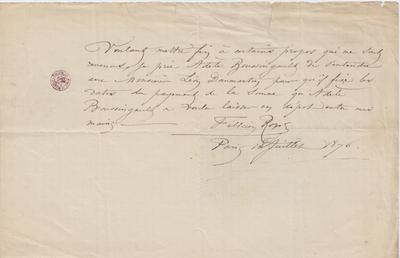 Voulant mettre fin à certains propos qui me sont
revenus, je prie Adèle Boussingault de s'entendre
avec Monsieur Léon Dommartin, pour qu'il fixe les
dates du payement de la somme qu'Adèle
Boussingault a voulu laisser en dépôt entre mes
mains
Félicien Rops
Paris Juillet 1876.